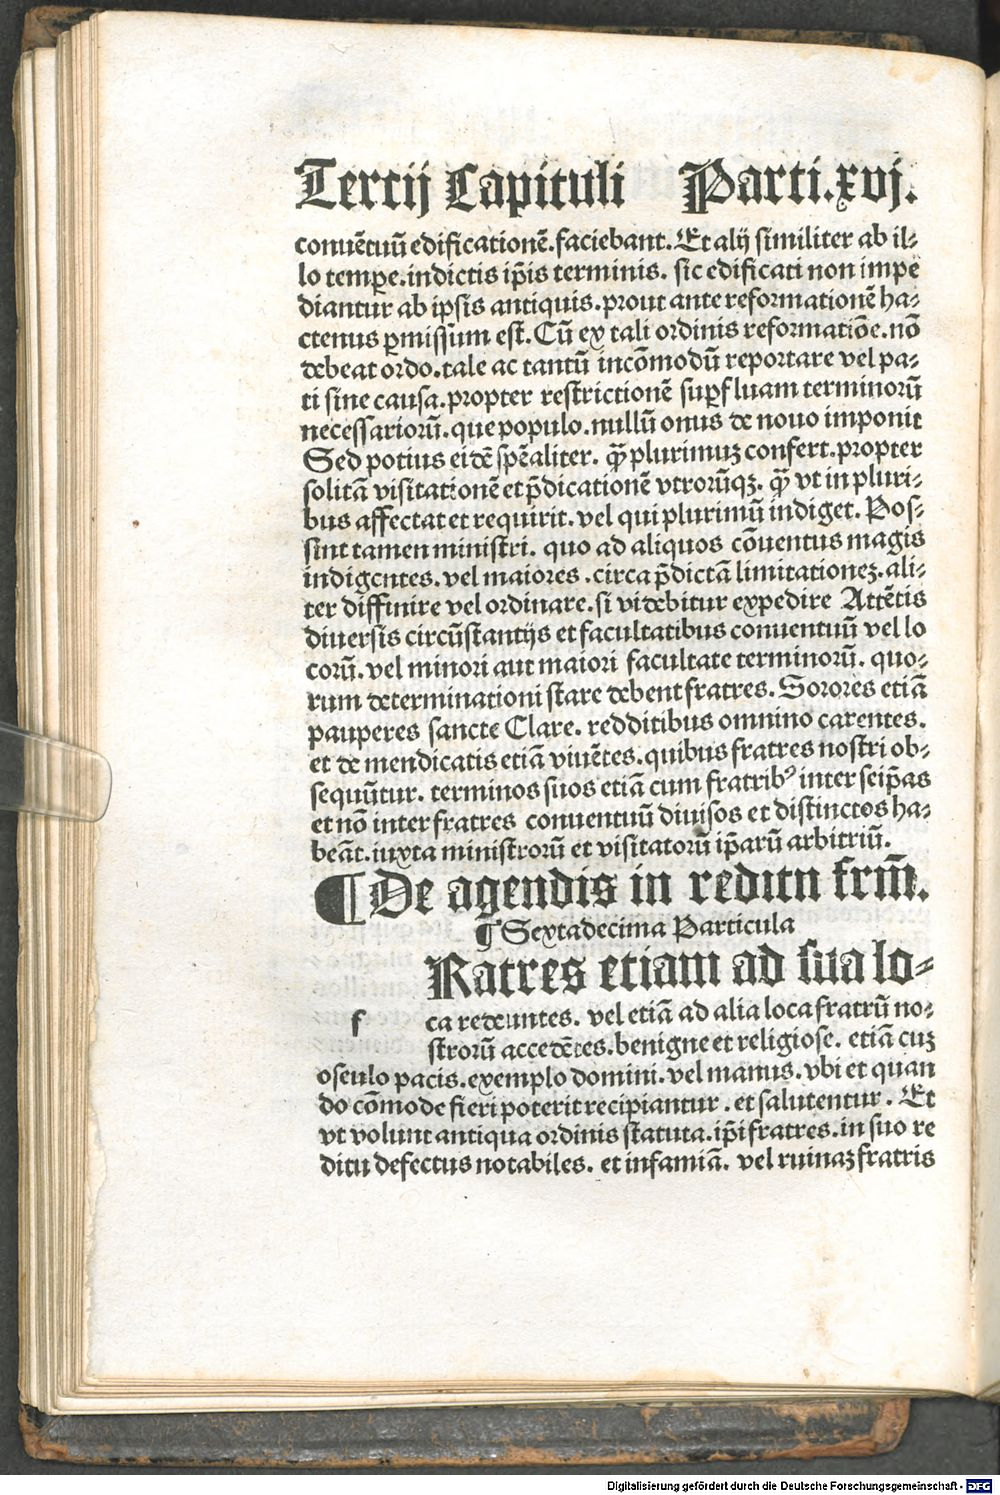 Tercij Capituli Parti.xvj.
conuẽtuũ edificationẽ.faciebant.Et alij similiter ab il⸗
lo tempꝑe.indictis ip̃is terminis. sic edificati non impe
diantur ab ipsis antiquis.prout ante reformationẽ ha⸗
ctenus ꝑmissum est. Cũ ex tali ordinis reformatiõe.nõ
debeat ordo.tale ac tantũ incõmodũ reportare vel pa⸗
ti sine causa.propter restrictionẽ suꝑfluam terminorũ
necessariorũ.que populo.nullũ onus de nouo imponit
Sed potius eidẽ sp̃ealiter. ꝙ̃ plurimuz confert.propter
solitã visitationẽ et p̃dicationẽ vtrorũqz. ꝙ̃ vt in pluri⸗
bus affectat et requirit.vel qui plurimũ indiget. Pos⸗
sint tamen ministri. quo ad aliquos cõuentus magis
indigentes.vel maiores .circa p̃dictã limitationez.ali⸗
ter diffinire vel ordinare.si videbitur expedire Attẽtis
diuersis circũstantijs et facultatibus conuentuũ vel lo
corũ.vel minori aut maiori facultate terminorũ. quo⸗
rum determinationi stare debent fratres. Sorores etiã
pauperes sancte Clare. redditibus omnino carentes.
et de mendicatis etiã viuẽtes.quibus fratres nostri ob⸗
sequũtur. terminos suos etiã cum fratribꝰ inter seip̃as
et nõ inter fratres conuentuũ diuisos et distinctos ha⸗
beãt.iuxta ministrorũ et visitatorũ ip̃arũ arbitriũ.
¶ De agendis in reditu frm̃.
¶ Sextadecima Particula
f Ratres etiam ad sua lo⸗
ca redeuntes. vel etiã ad alia loca fratrũ no⸗
strorũ accedẽtes.benigne et religiose. etiã cuz
osculo pacis.exemplo domini.vel manus.vbi et quan
do cõmode fieri poterit recipiantur .et salutentur. Et
vt volunt antiqua ordinis statuta.ip̃i fratres.in suo re
ditu defectus notabiles. et infamiã. vel ruinaz fratris
Digitalisierung gefördert durch die Deutsche Forschungsgemeinschaft - DFG